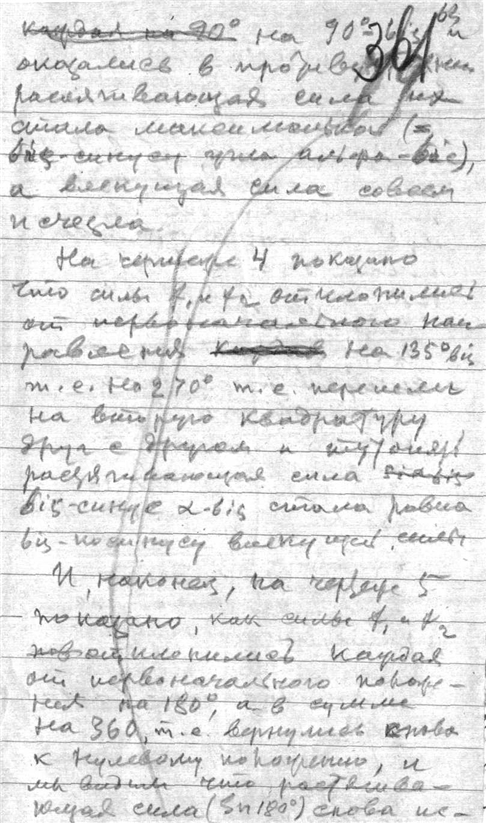 каждая на 90° на 90° biz и
оказались в противо
растягивающая сила их
стала максимальной (=
biz-синусу угла альфа-biz),
а влекущая сила совсем
исчезла
На чертеже 4 показано
что силы f₁ и f₂ отклонились
от первоначального нап
равления каждая на 135° biz
т.е. на 270° т.е. перешли
на вторую квадратуру
друг с другом и тут опять
растягивающая сила
biz-синус α-biz стала равна
biz-косинусу влекущей силы
И, наконец, на чертеже 5
показано, как силы f₁ и f₂
отклонились каждая
от первоначального положе-
ния на 180°, а в сумме
на 360, т.е. вернулись снова
к нулевому положению, и
мы видим что растягива-
ющая сила (Sn 180°) снова ис-